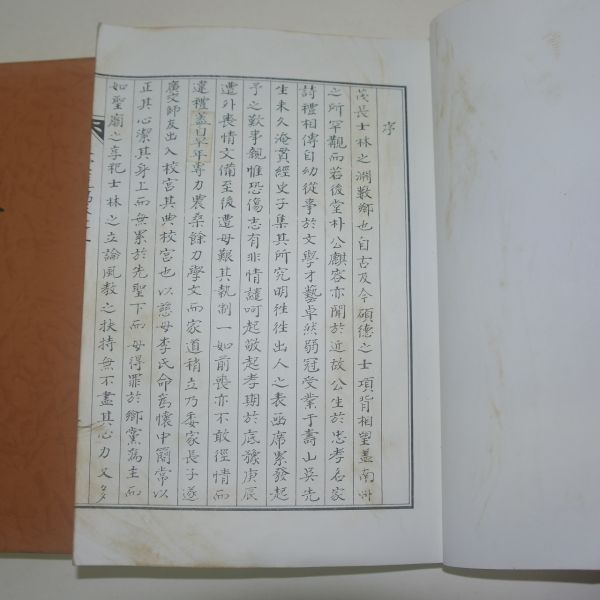 序
茂長士林之淵藪鄉也自古及今碩德之士項背相望盖南州
之所罕觀而若後堂朴公麒容亦聞於近故公生於忠孝名家
詩禮相傳自幼從事於文學才藝卓然弱冠受業于壽山吳先
生未久淹貫經史子集其所究明徃徃出人之表函席累發起
予之歎事親惟恐傷志有非情譴呵起敬起孝期於底豫庚辰
遭外喪情文備至後遭母艱其執制一如前喪亦不敢徑情而
違禮盖自早年專力農桑餘力學文而家道稍立乃委家長子遂
廣交師友出入校宮其典校宮也以慈母李氏命舊懷中罰常以
正其心潔其身上而無累於先聖下而毋得罪於鄉黨爲圭而
如聖廟之享祀士林之立論風教之扶持無不盡其心力又多